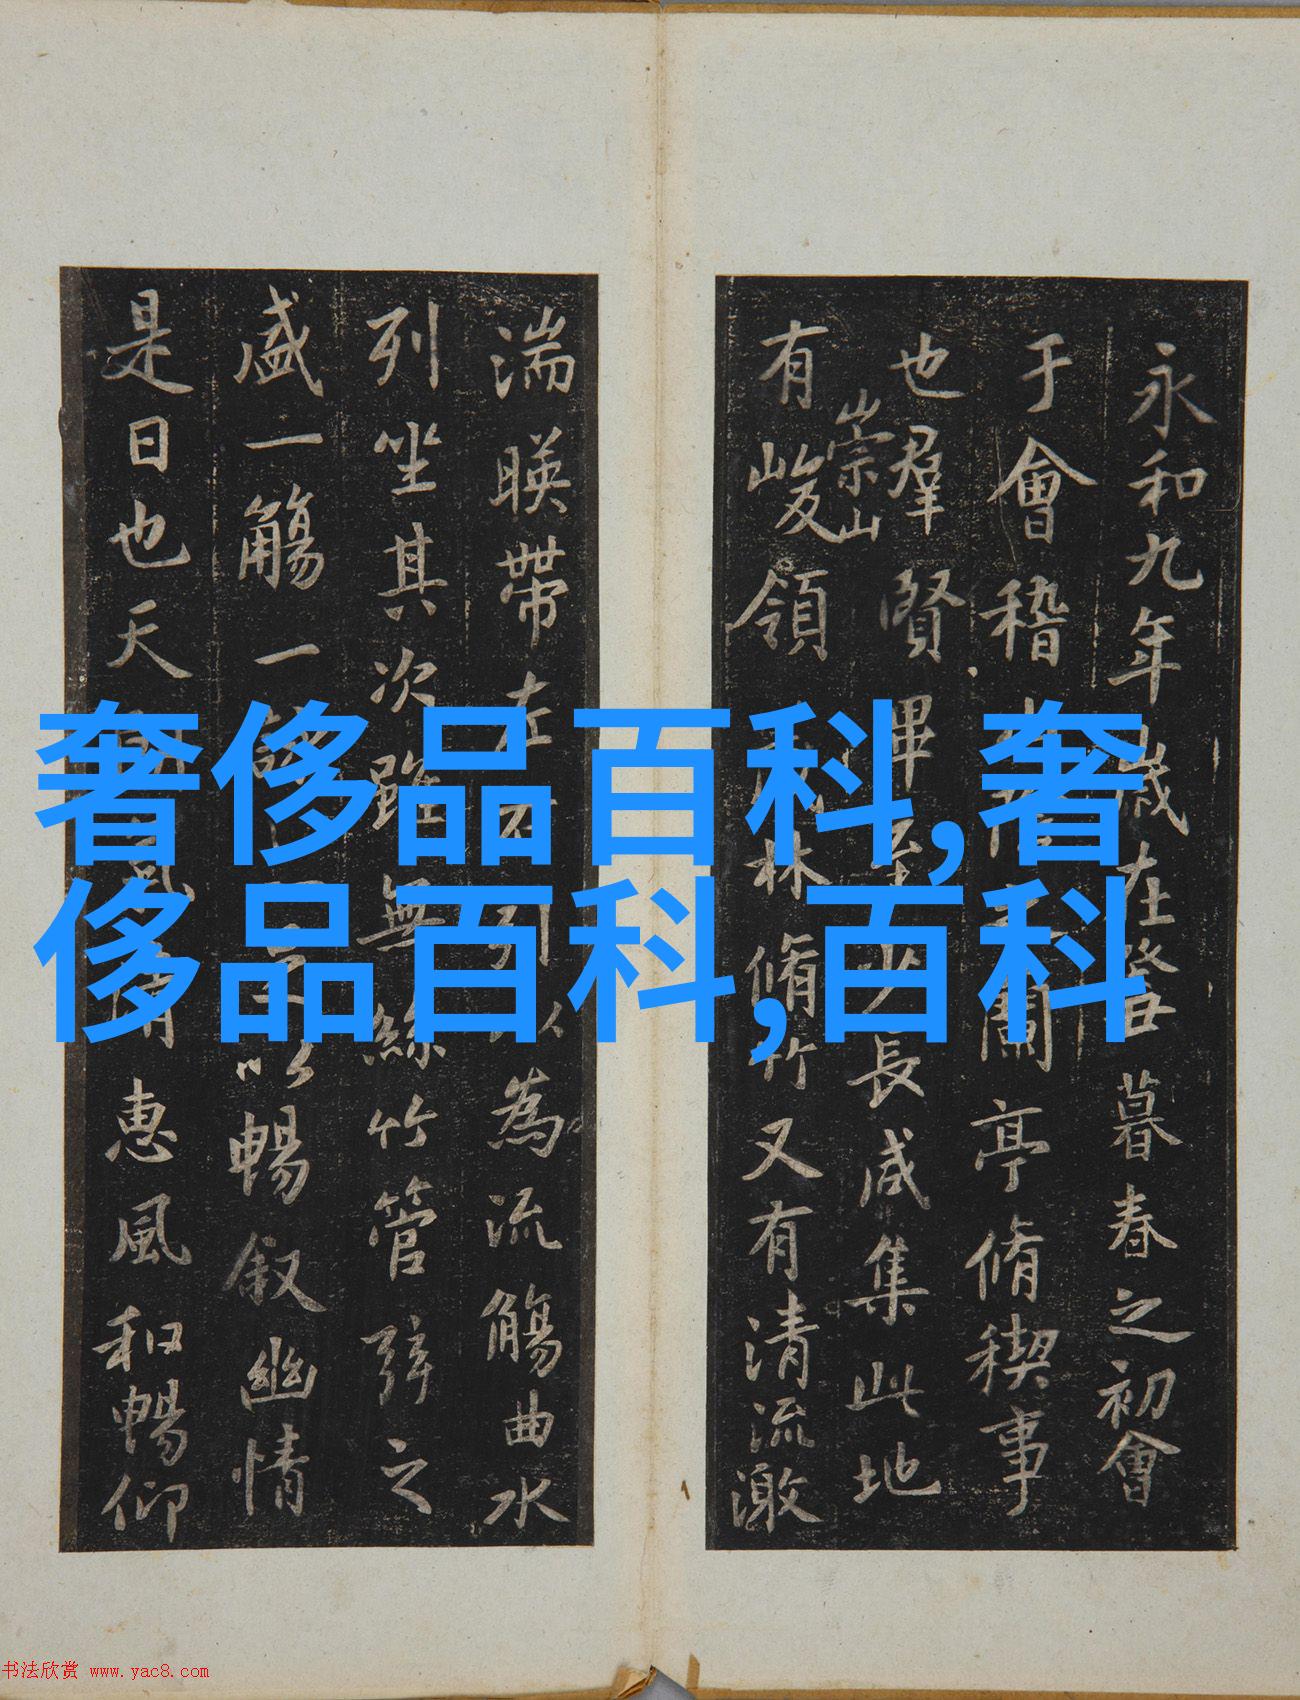 奢侈品百科,奢
侈品百科,百科
永和九年歲在癸丑暮春之初會
于會稽蘭亭脩禊事
也羣賢畢至少長咸集此地
有崇山峻領林脩竹又有清流激
湍暎帶左右引以為流觴曲水
列坐其次雖無絲竹管弦之
盛一觴一以暢叙幽情
是日也天惠風和暢仰
书法欣赏 www.yac8.com